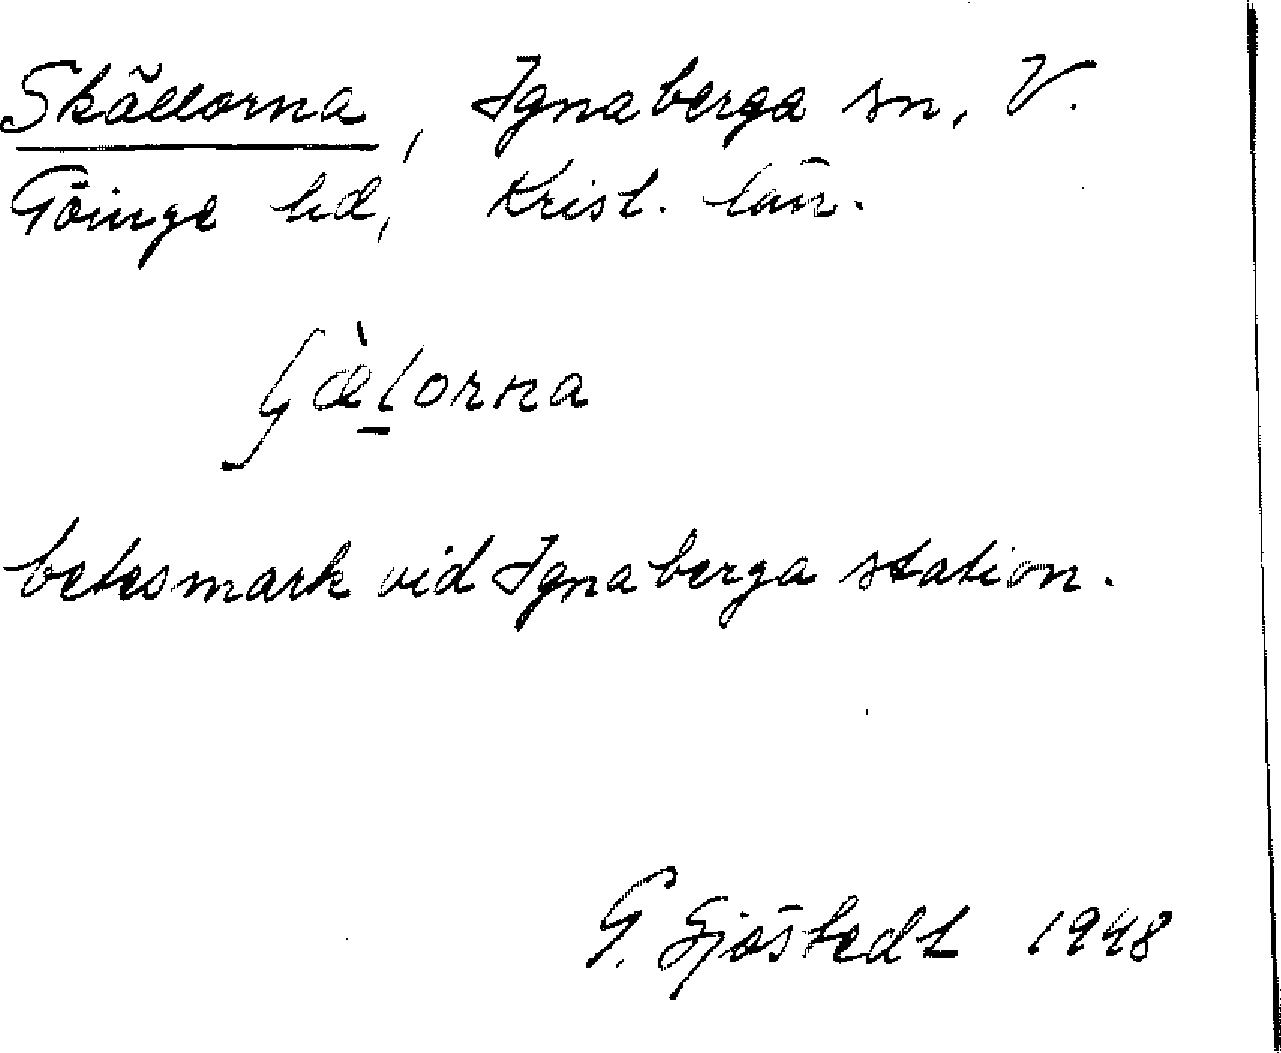 Skällorna, Ignaberga sn, V.
Göinge hd, Krist. län.
ʃæ̀l̲orna
betesmark vid Ignaberga station.
G. Sjöstedt 1948